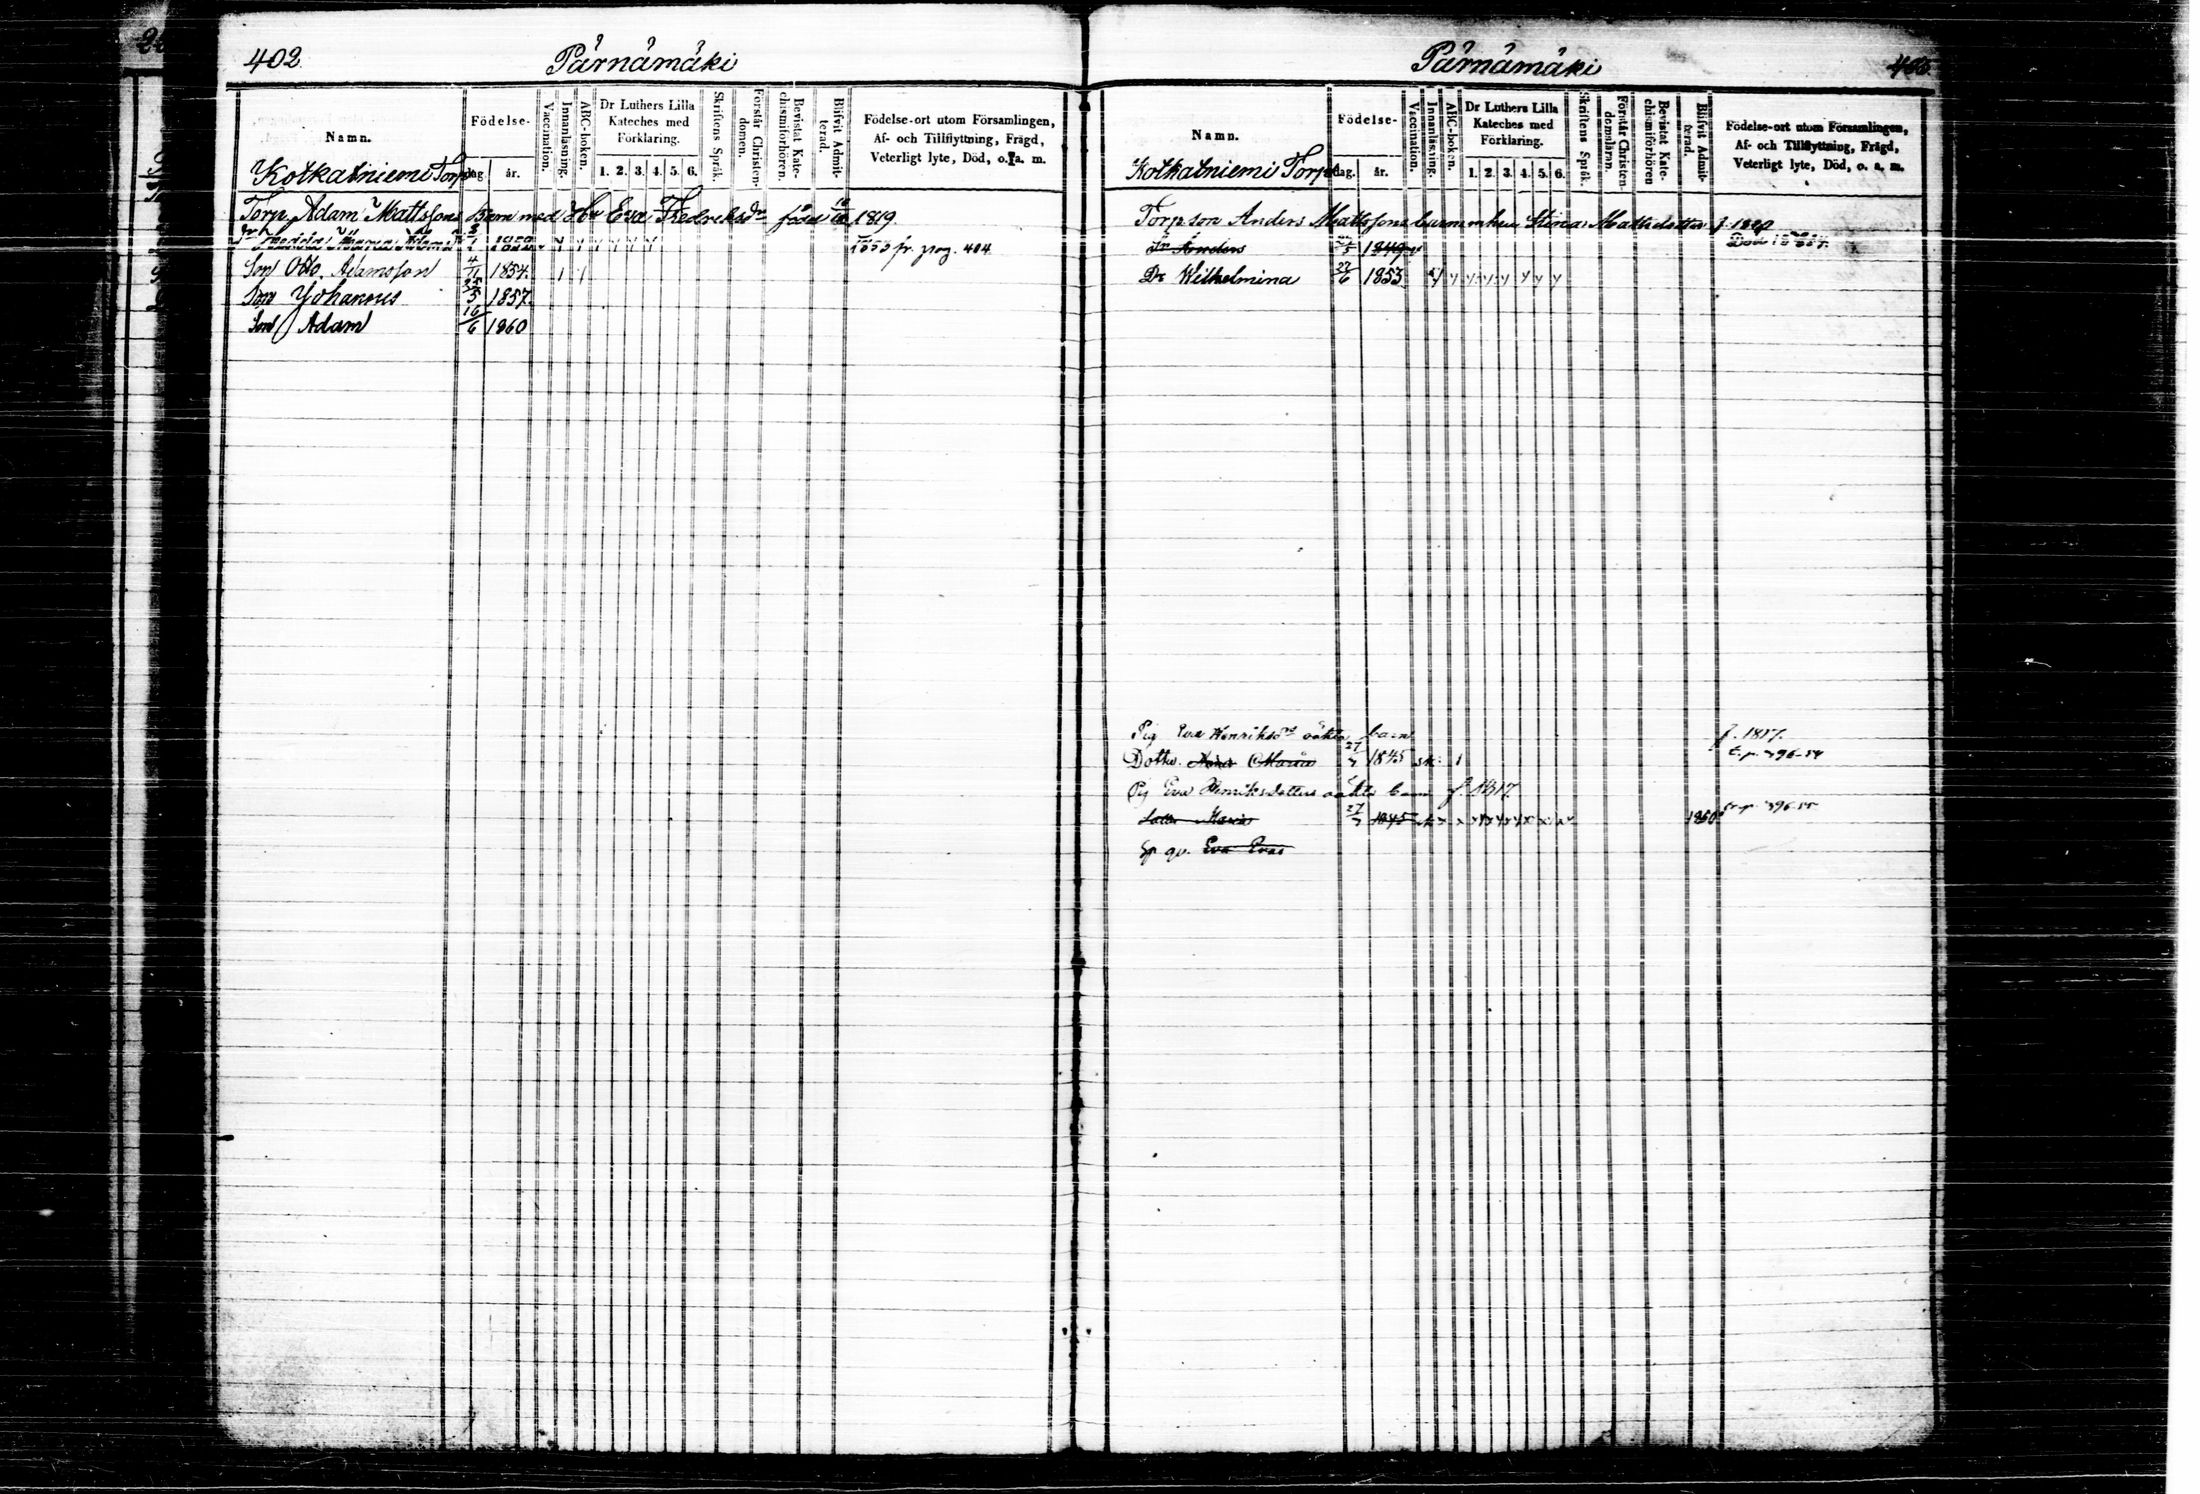 402
Pärnämäki
Namn.
Födelse-
dag.
år.
Vaccination.
Innanläsning.
ABC-boken.
Dr Luthers Lilla
Kateches med
Förklaring.
1. 2. 3. 4. 5. 6.
Skriftens Språk.
Förstår Christen-
domen.
Bevistat Kate-
chismiförhören.
Blifvit Admit-
terad.
Födelse-ort utom Församlingen,
Af- och Tillflyttning, Frägd,
Veterligt lyte, Död, o. a. m.
Kotkatniemi Torp
Torp. Adam Mattssons Barn med Hu Eva Fredriksdr född 1819
Maria 1853 fr. pag. 404
Son Otto Adamsson 4/11 1854
Son Johannes 1857
Son Adam 16/6 1860
Pärnämäki
Namn.
Födelse-
dag.
år.
Vaccination.
Innanläsning.
ABC-boken.
Dr Luthers Lilla
Kateches med
Förklaring.
1. 2. 3. 4. 5. 6.
Skriftens Språk.
Förstår Christen-
domsläran.
Bevistat Kate-
chismiförhören
Blifvit Admit-
terad.
Födelse-ort utom Församlingen,
Af- och Tillflyttning, Frägd,
Veterligt lyte, Död, o. a. m.
Kotkatniemi Torp
Torp.son Anders Mattssons barn m hu Stina Mattsdotter f.
Sn Anders 1849 Död
Dr Wilhelmina 27/6 1853
Pig Eva Henriksdrs oäkta barn f. 1817.
Dotter. Maria 27/7 1845 t.p. 396-54
Pig Eva Henriksdotters oäkta barn f. 1817
Maria 27/7 1845 1860 396
Eva